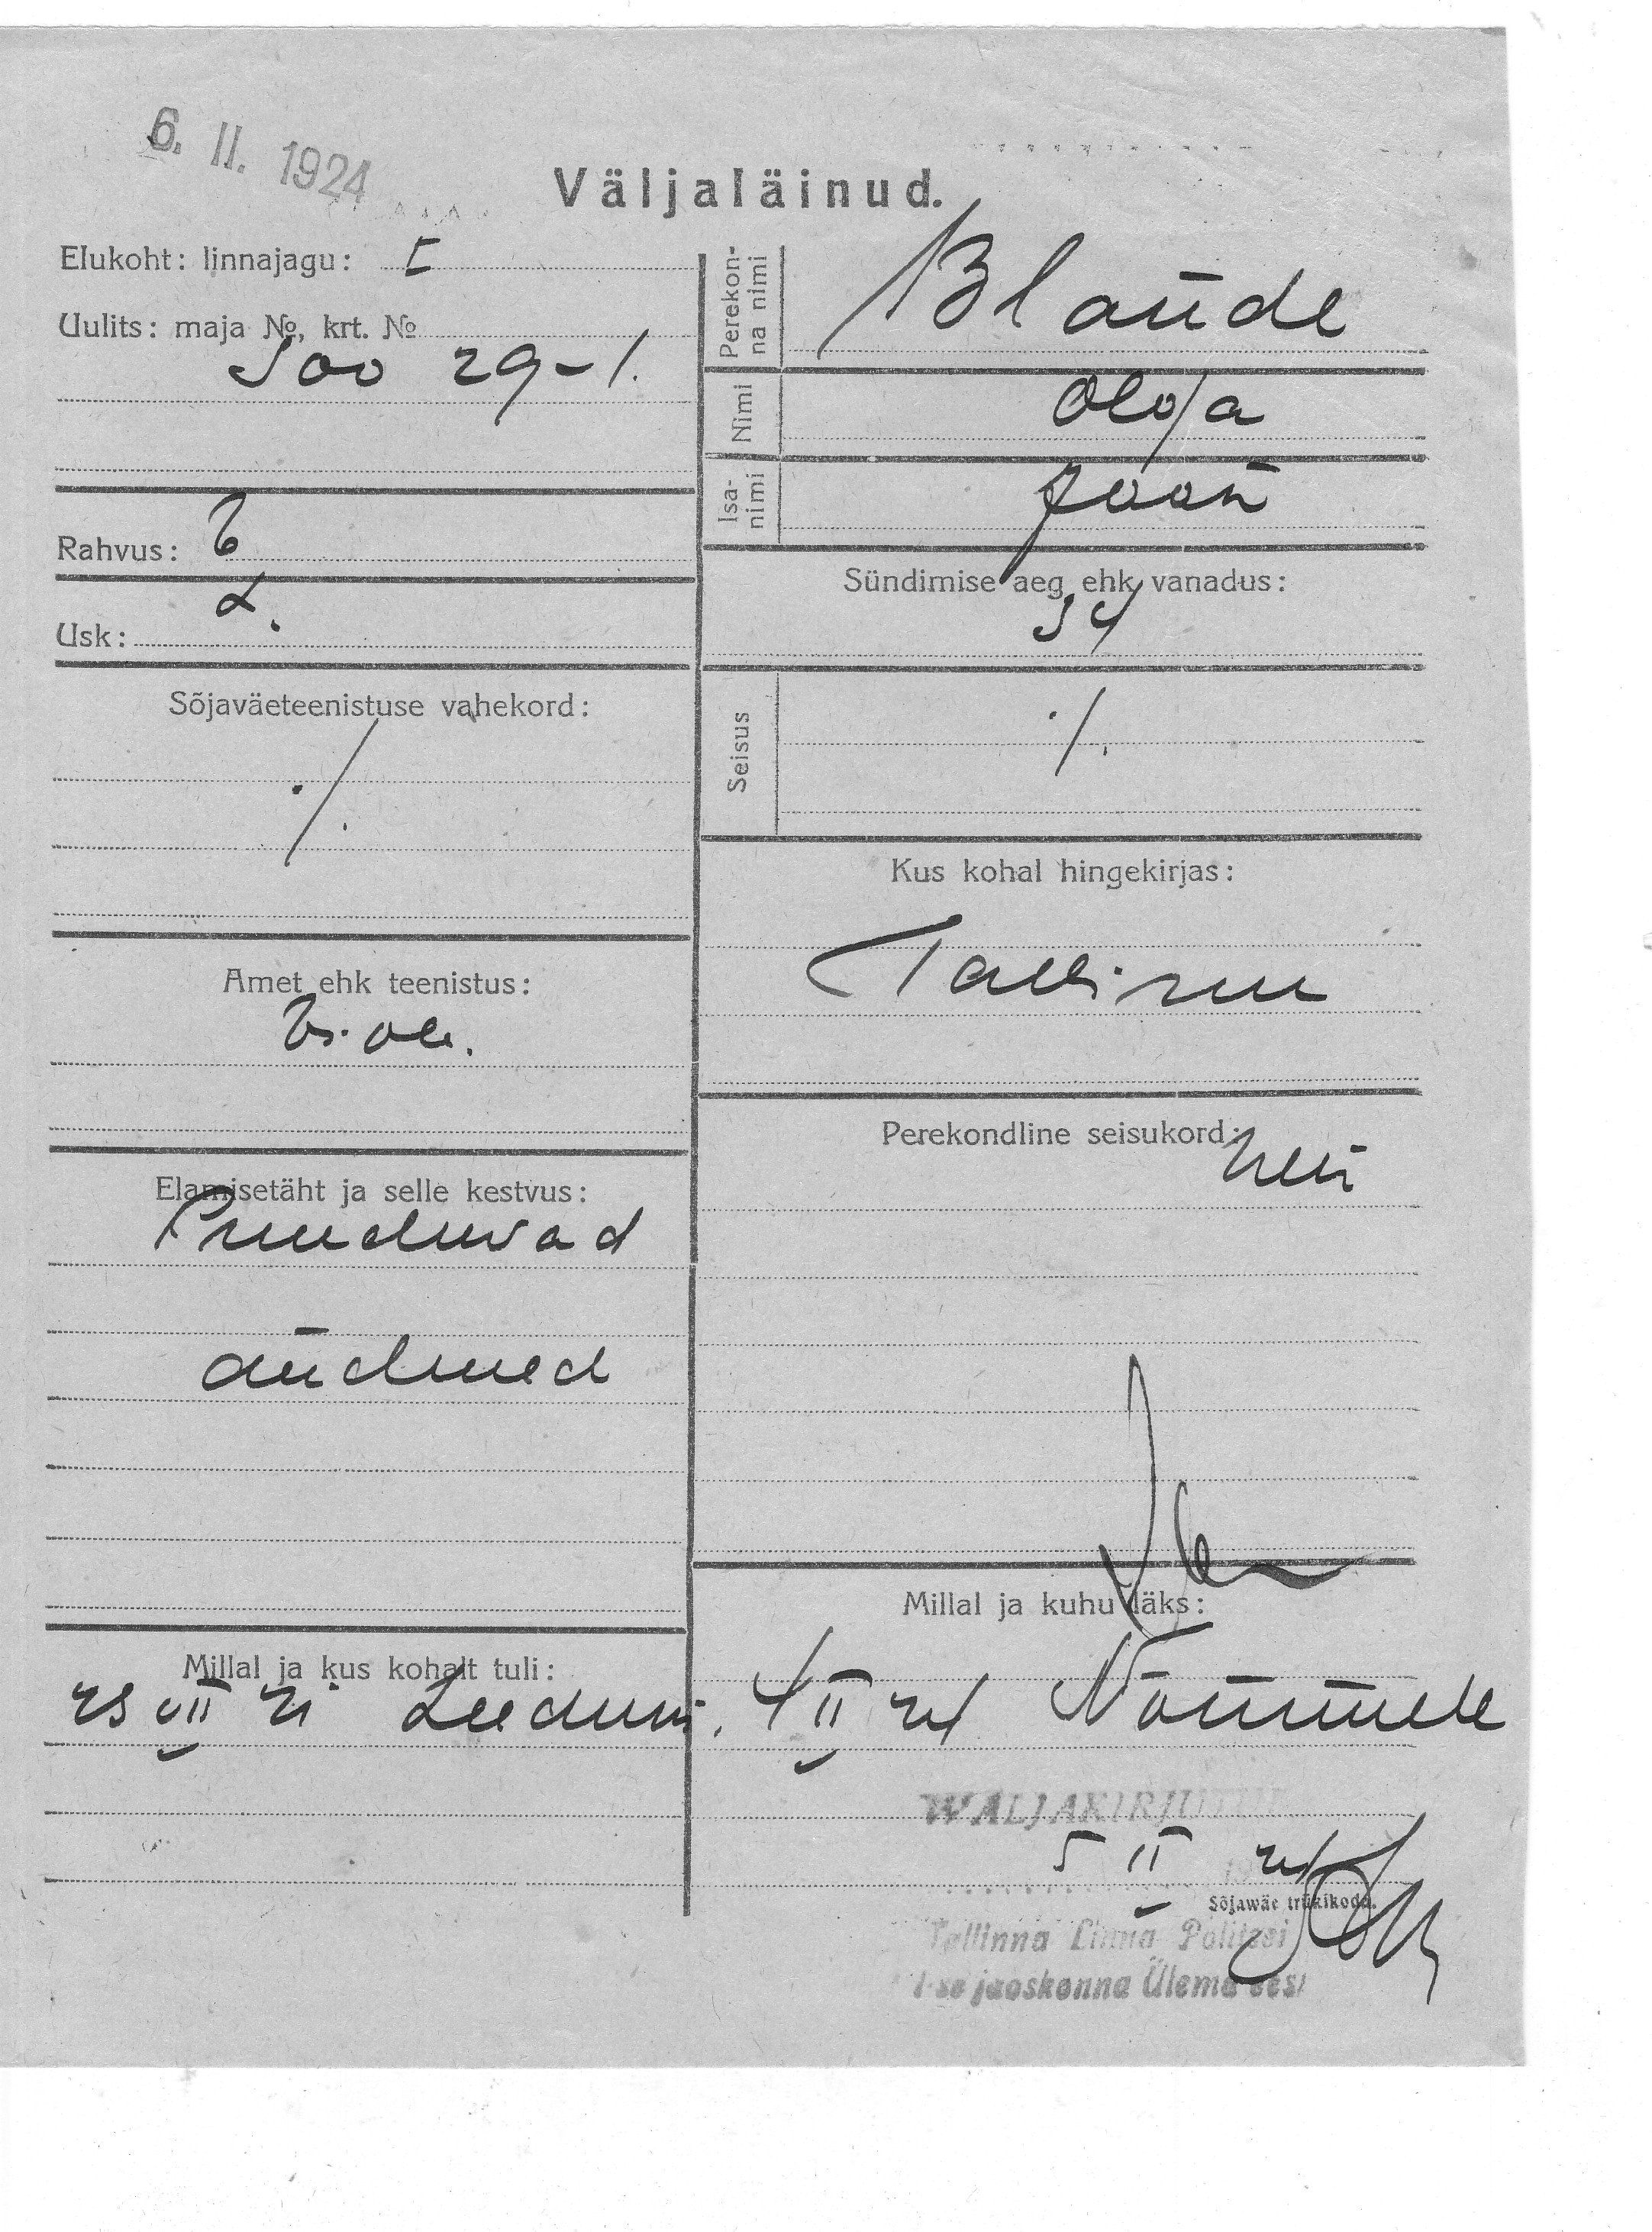 6. II. 1924
Väljaläinud.
Elukoht: linnajagu: I
Uulits: maja №, krt. №
Soo 29-1.
Rahvus: E
Usk: L.
Sõjaväeteenistuse vahekord:
./.
Amet ehk teenistus:
Elamisetäht ja selle kestvus:
Puuduvad
andmed
Millal ja kus kohalt tuli:
VII Leedust.
Perekon-
na nimi
Blande
Nimi
Olga
Isa-
nimi
Jaan
Sündimise aeg ehk vanadus:
34
Seisus
./.
Kus kohal hingekirjas:
Tallinn
Perekondline seisukord:
Millal ja kuhu läks:
4 II 24 Nõmmele
WALJAKIRJUTUD
5 II 24
Sõjawäe trükikoda.
Tallinna Linna Politsei
I-se jaoskonna Ülema eest